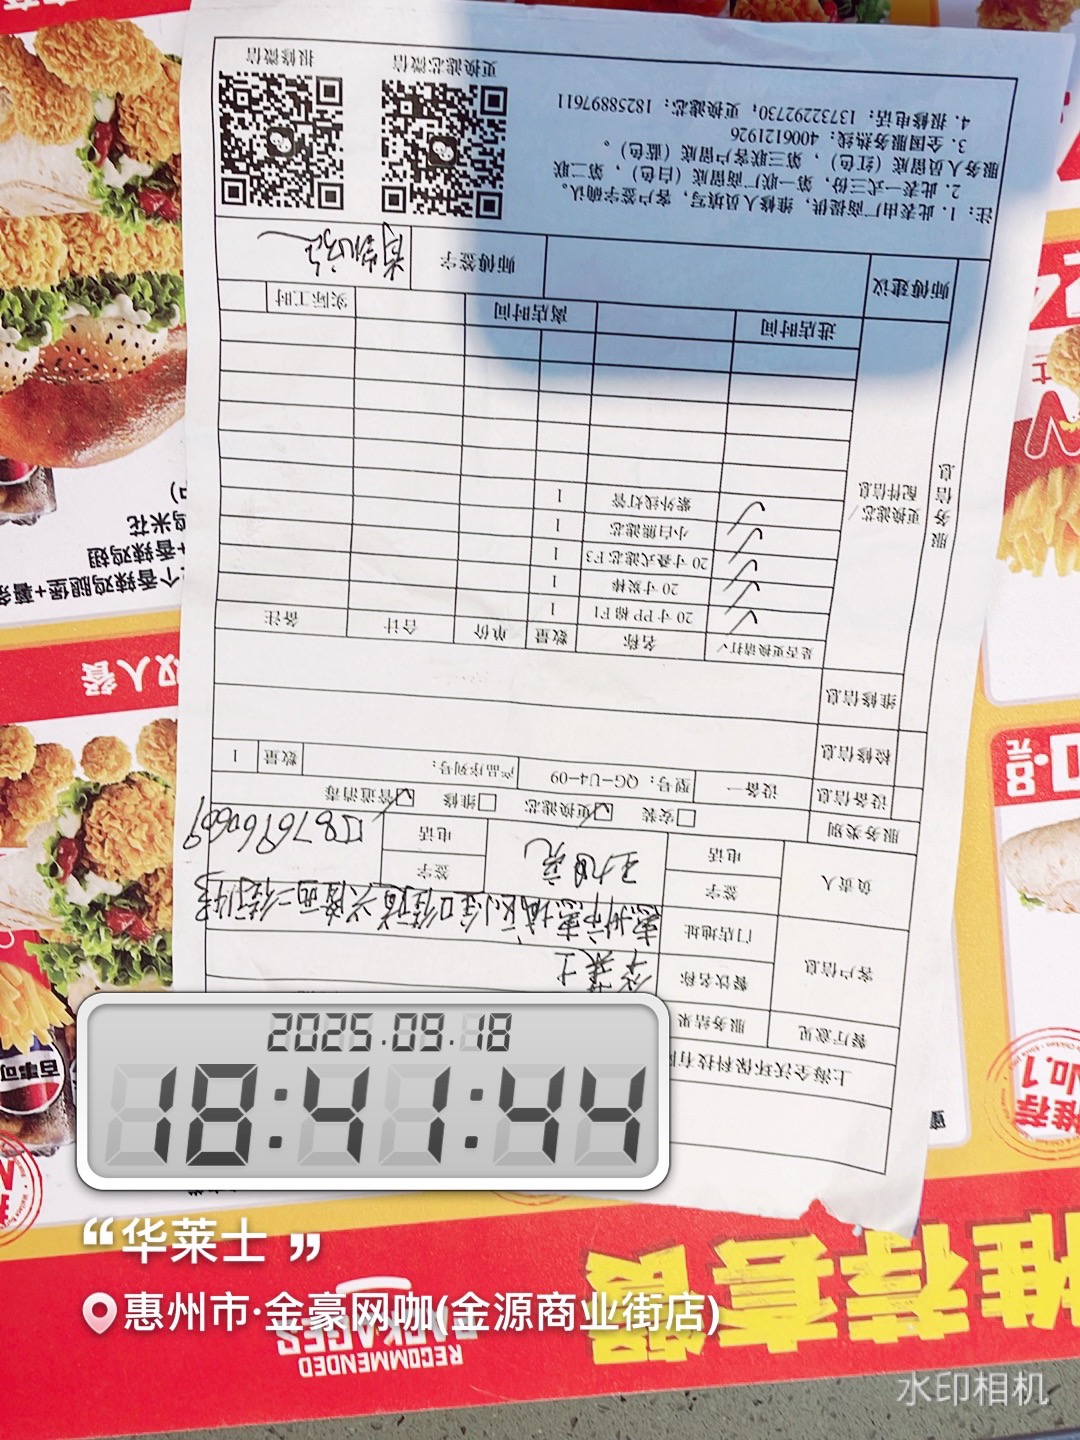 上海全沃环保科技有限
餐厅意见 服务结果
客户信息 餐饮名称 华莱士
门店地址 惠州市惠城区水口街道兴隆西二街
负责人 签字 签字
电话 电话
服务类别 安装 更换滤芯 维修 管道消毒
设备信息 设备一 型号：QG-U4-09 产品序列号： 数量 1
检修信息
维修信息
服务信息
更换滤芯/配件信息
是否更换请打√ 名称 数量 单价 合计 备注
✓ 20 寸 PP 棉 F1 1
✓ 20 寸炭棒 1
✓ 20 寸叠式滤芯 F3 1
✓ 小白熊滤芯 1
✓ 紫外线灯管 1
进店时间 离店时间 实际工时
师傅建议 师傅签字
注：1．此表由厂商提供，维修人员填写，客户签字确认。
2．此表一式三份，第一联厂商留底（白色），第二联
服务人员留底（红色），第三联客户留底（蓝色）。
3．全国服务热线：4006121926
4．报修电话：13732292730，更换滤芯：18258897611
更换滤芯微信 报修微信
双人餐
个香辣鸡腿堡+薯条
+香辣鸡翅
鸡米花
推荐
No.1
百事可
推荐套餐
RECOMMENDED
PACKAGES
2025.09.18
18:41:44
“华莱士”
惠州市·金豪网咖(金源商业街店)
水印相机